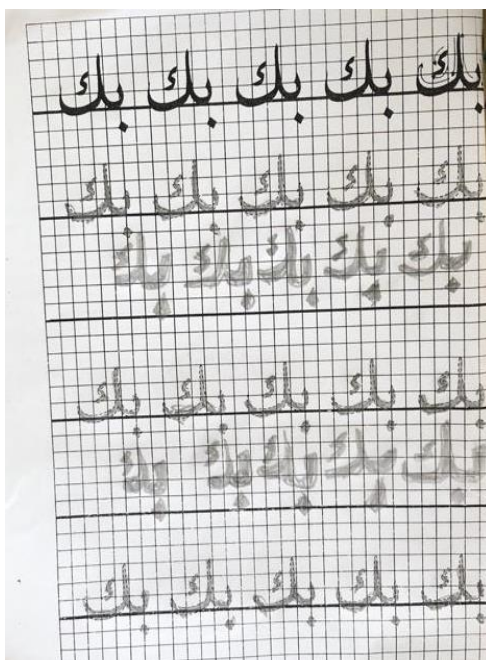 بك بك بك بك بك
بك بك بك بك بك
بك بك بك بك بك
بك بك بك بك بك
بك بك بك بك بك
بك بك بك بك بك